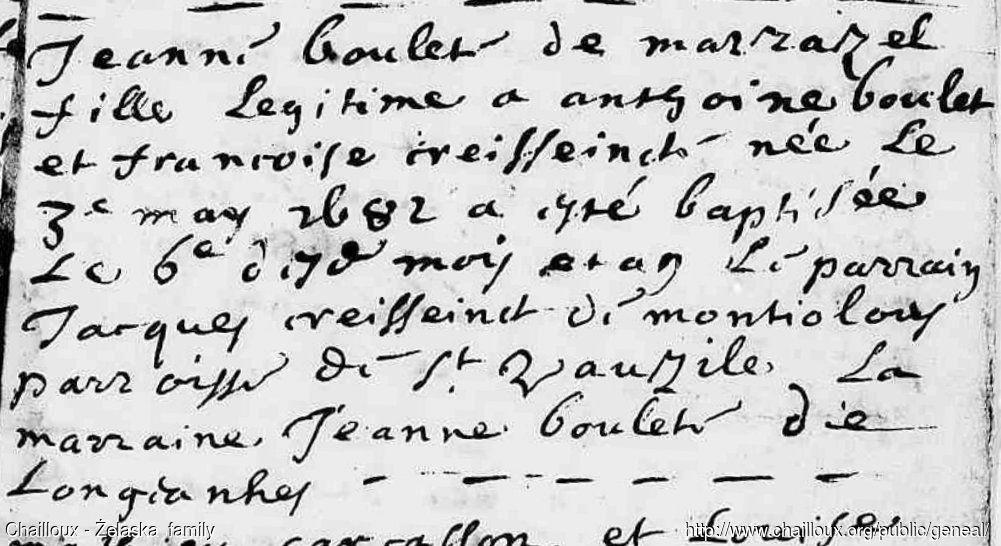 Jeanne boulet de marrazel
fille Legitime a anthoine boulet
et francoise creisseinct née Le
3e may 1682 a esté baptisée
Le 6e dud mois et an Le parrain
Jacques creisseinct de montiolous
parroisse de St
La
marraine Jeanne boulet de
Longianhes
et
Chailloux - Żelaska family
http://www.chailloux.org/public/geneal/